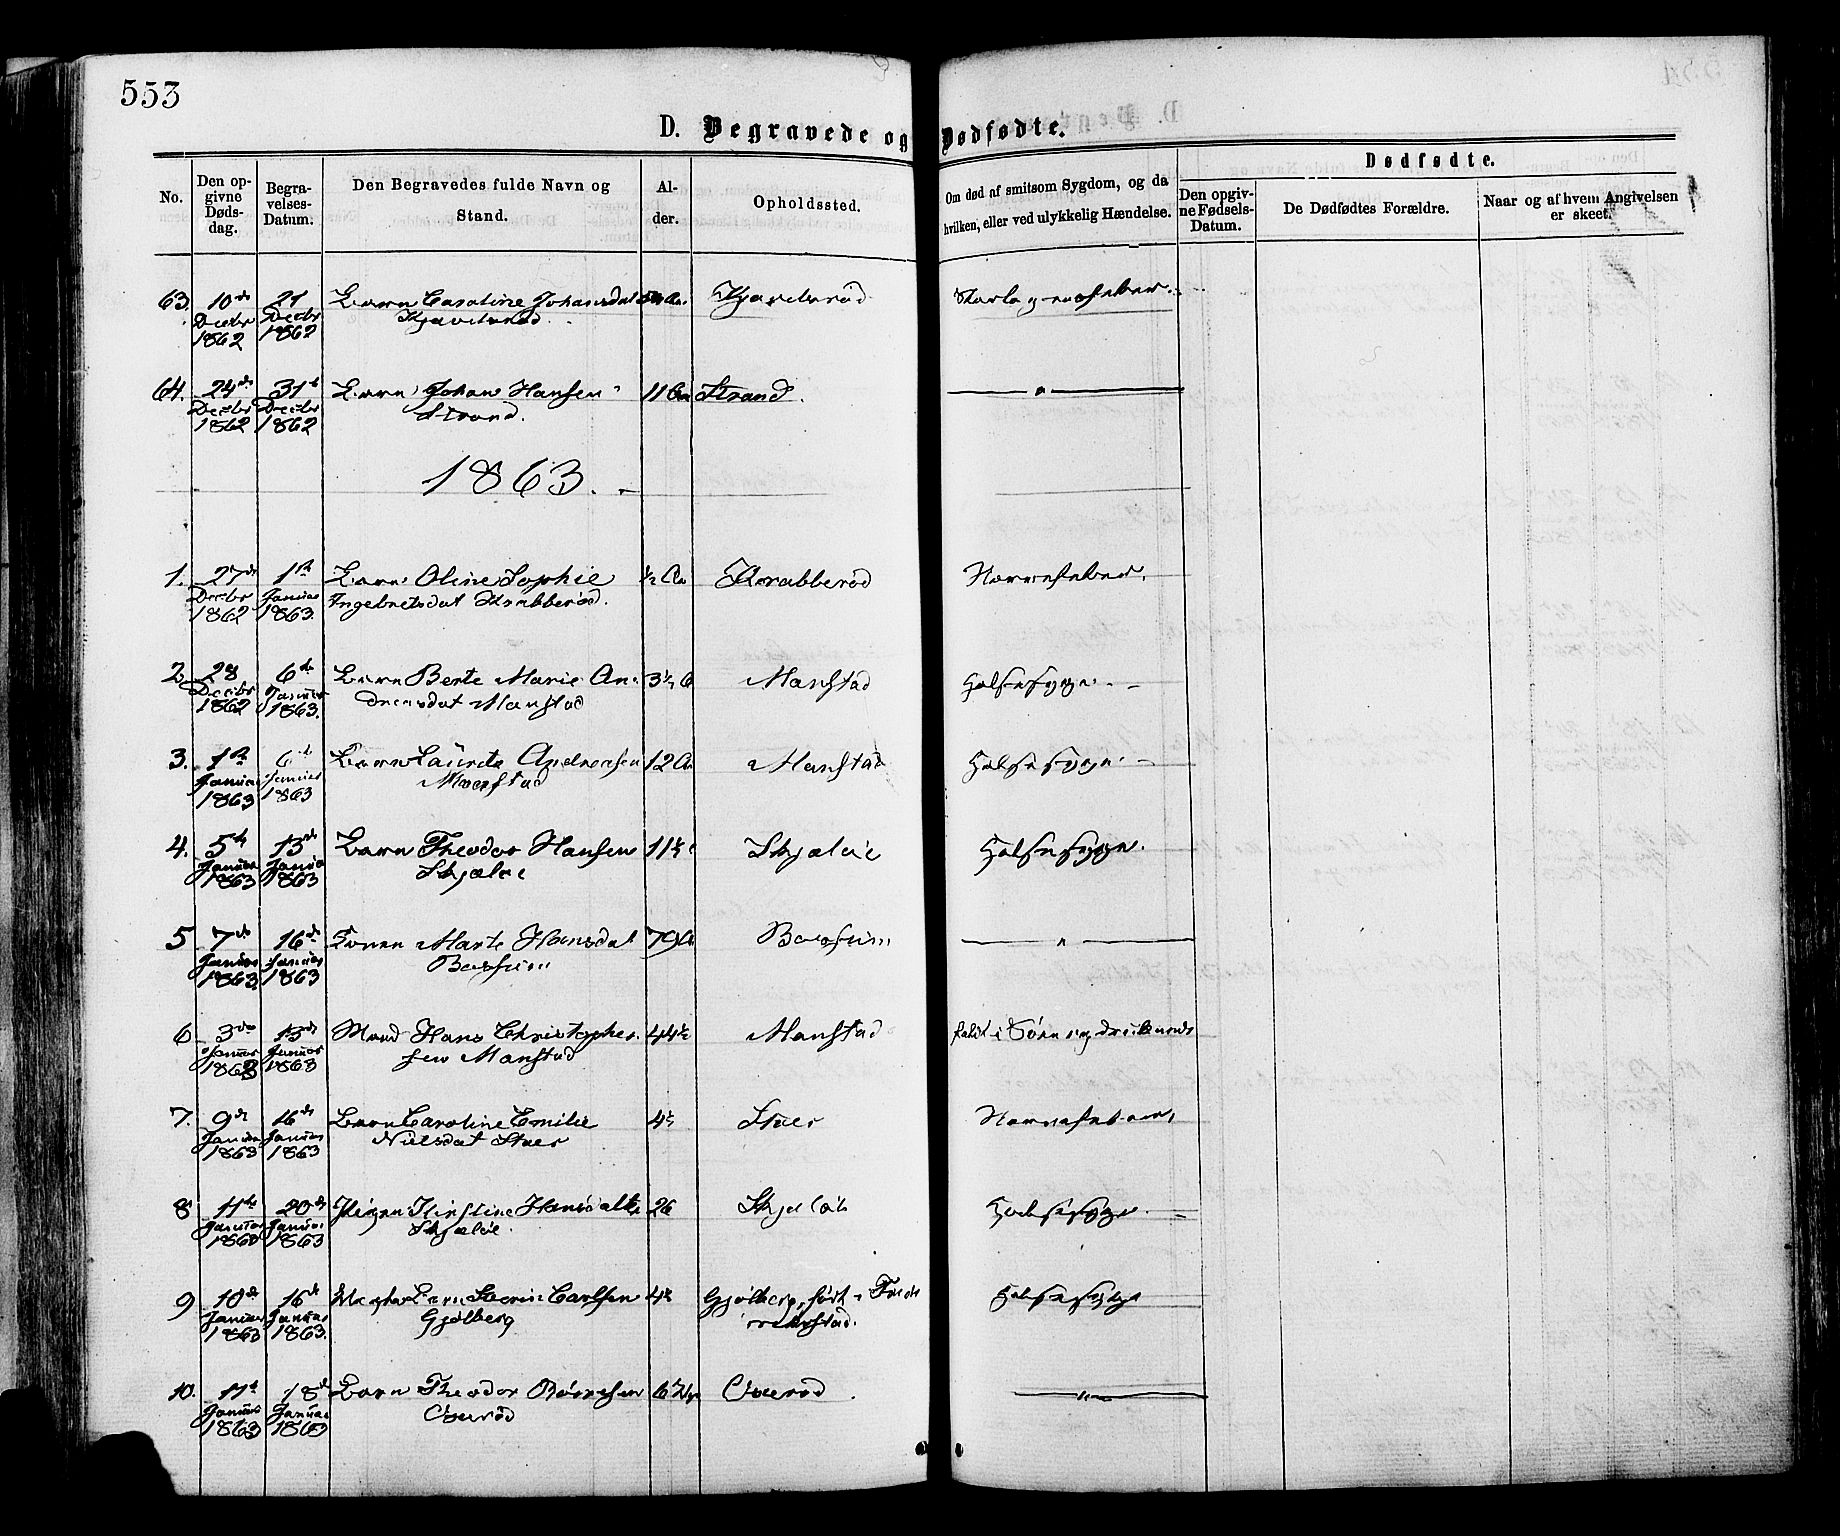 553
D. Begravede og Dødfødte.
No.
Den opgivne Dødsdag.
Begravelses-Datum.
Den Begravedes fulde Navn og Stand.
Alder.
Opholdssted.
Om død af smitsom Sygdom, og da hvilken, eller ved ulykkelig Hændelse.
Dødfødte.
Den opgivne Fødsels-Datum.
De Dødfødtes Forældre.
Naar og af hvem Angivelsen er skeet.
63. 10de 21 Barn Caroline Johansdat
Decbr Decbr
1862 1862
64. 24de 31te Barn Johan Hansen 11 Aar Strand.
Decbr Decbr Strand.
1862 1862
1863.
1. 27de 1ste Barn Oline Sophie ½ Aar Krabberød Nervefeber.
Decbr Januar Ingebretsdat Krabberød.
1862 1863.
2. 28 6te Barn Berte Marie An- 3½ Manstad Halsesyge.
Decbr Januar dreasdat Manstad
1862 1863.
3. 1ste 6te Barn Laurits Andreasen 12 Aar Manstad Halsesyge.
Januar Januar Manstad
1863 1863
4. 5te 13de Barn Theodor Hansen 11½ Skjæløe Halsesyge.
Januar Januar Skjæløe
1863 1863
5 7de 16de Konen Marte Hansdat 79
Januar Januar
1863. 1863
6 3die 13de Mand Hans Christopher- 44½ Manstad
Januar Januar sen Manstad
1863 1863
7. 9de 16de Barn Caroline Emilie 4½ Staer Nervefeber.
Januar Januar Nielsdat Staer
1863 1863
8 11te 20de Pigen Kirstine Hansdatter 26 Skjæløe Halsesyge.
Januar Januar Skjæløe.
1863 1863
9 10de 16de Barn Carlsen 4½ Gjølberg, født i Frede-
Januar Januar Gjølberg rikstad. Halsesyge
1863 1863.
10. 11te 18de Barn Theodor
Januar Januar
1863 1863